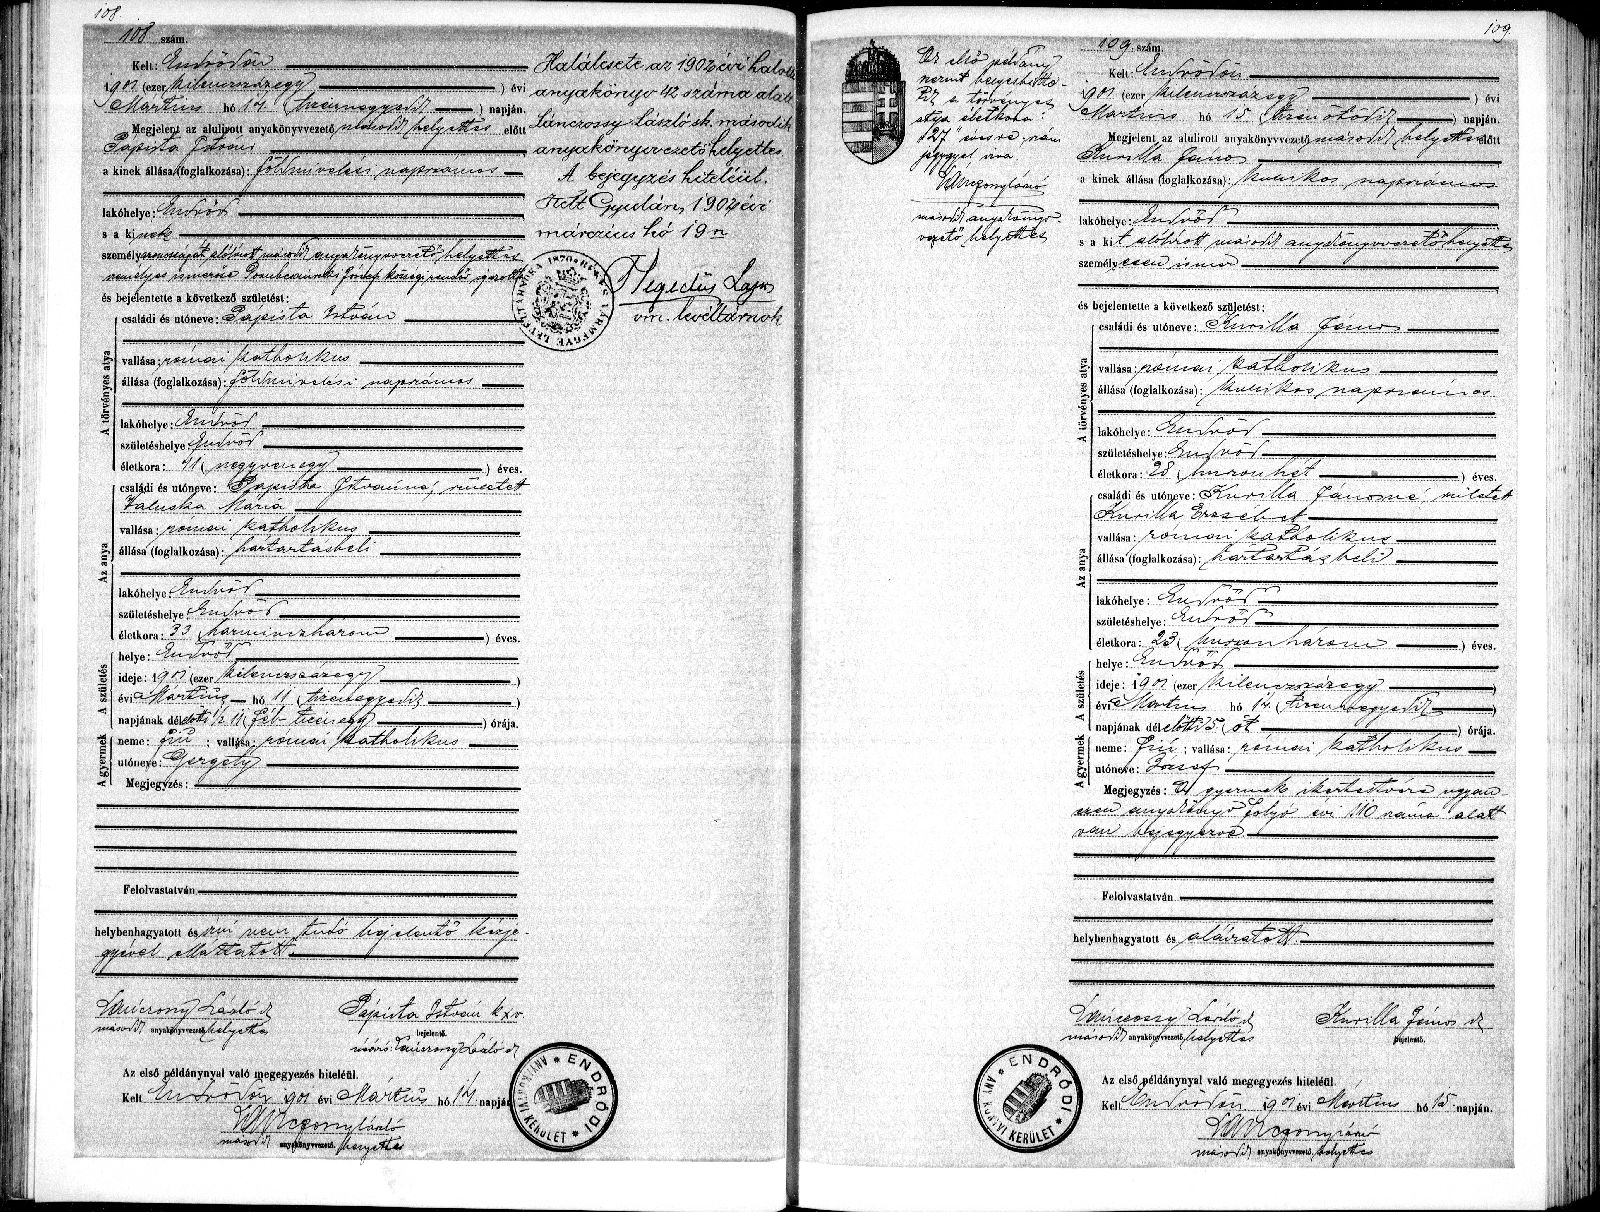 108
108 szám.
Kelt: Endrődön
1901 (ezer kilenczszázegy) évi
Martius hó 14 (tizennegyedik) napján.
Megjelent az alulirott anyakönyvvezető második helyettes előtt
Papista István
a kinek állása (foglalkozása): földmivelési napszámos
lakóhelye: Endrőd
s a kinek
személyazonosságát előbbirt második anyakönyvvezető helyettes
személyes ismerőse községi rendőr igazolta
és bejelentette a következő születést:
A törvényes atya
családi és utóneve: Papista István
vallása: római katholikus
állása (foglalkozása): földmivelési napszámos
lakóhelye: Endrőd
születéshelye Endrőd
életkora: 41 (negyvenegy) éves.
Az anya
családi és utóneve: Papista Istvánné, született
Valuska Mária
vallása: római katholikus
állása (foglalkozása): háztartásbeli
lakóhelye: Endrőd
születéshelye Endrőd
életkora: 33 (harminczhárom) éves.
A születés
helye: Endrőd
ideje: 1901 (ezer kilenczszázegy)
évi Martius hó 11 (tizenegyedik)
napjának délelőtti 1/2 11 (fél tizenegy) órája.
A gyermek
neme: fiú; vallása: római katholikus
utóneve: Gergely
Megjegyzés:
Felolvastatván
helybenhagyatott és irni nem tudó bejelentő kézje-
gyével elláttatott
Papista István kxv
második anyakönyvvezető, helyettes
bejelentő.
Az első példánynyal való megegyezés hiteléül.
Kelt Endrődön 1901 évi Mártius hó 14 napján
második anyakönyvvezető, helyettes
Halálesete az 1902 évi halotti
anyakönyv 42 száma alatt
Lánczossy László sk. második
anyakönyvvezető helyettes
A bejegyzés hiteléül.
Kelt Gyulán, 1902 évi
márczius hó 19 n
Hegedüs Lajos
vm. levéltárnok
ENDRŐDI
ANYAKÖNYVI KERÜLET
109
Az első példány
szerint helyesbitte-
tik a törvényes
atya életkora:
"27" évesre
második anyakönyv-
vezető, helyettes
109 szám.
Kelt: Endrődön
1901 (ezer kilenczszázegy) évi
Martius hó 15 (tizenötödik) napján.
Megjelent az alulirott anyakönyvvezető második helyettes előtt
Kurilla János
a kinek állása (foglalkozása): kubikos napszámos
lakóhelye: Endrőd
s a kit előbbirt második anyakönyvvezető helyettes
személyesen ismer
és bejelentette a következő születést:
A törvényes atya
családi és utóneve: Kurilla János
vallása: római katholikus
állása (foglalkozása): kubikos napszámos
lakóhelye: Endrőd
születéshelye: Endrőd
életkora: 28 (huszonhét) éves.
Az anya
családi és utóneve: Kurilla Jánosné, született
Kurilla Erzsébet
vallása: római katholikus
állása (foglalkozása): háztartásbeli
lakóhelye: Endrőd
születéshelye: Endrőd
életkora: 23 (huszonhárom) éves.
A születés
helye: Endrőd
ideje: 1901 (ezer kilenczszázegy)
évi Martius hó 14. (tizennegyedik)
napjának délelőtti 5 (öt) órája.
A gyermek
neme: fiú; vallása: római katholikus
utóneve: József
Megjegyzés: A gyermek ikertestvére ugyan-
ezen anyakönyv folyó évi 110 száma alatt
van bejegyezve
Felolvastatván
helybenhagyatott és aláiratott.
Lánczossy László sk
Kurilla János sk
második anyakönyvvezető, helyettes
bejelentő.
Az első példánynyal való megegyezés hiteléül.
Kelt Endrődön 1901 évi Mártius hó 15 napján.
második anyakönyvvezető, helyettes
ENDRŐDI
ANYAKÖNYVI KERÜLET